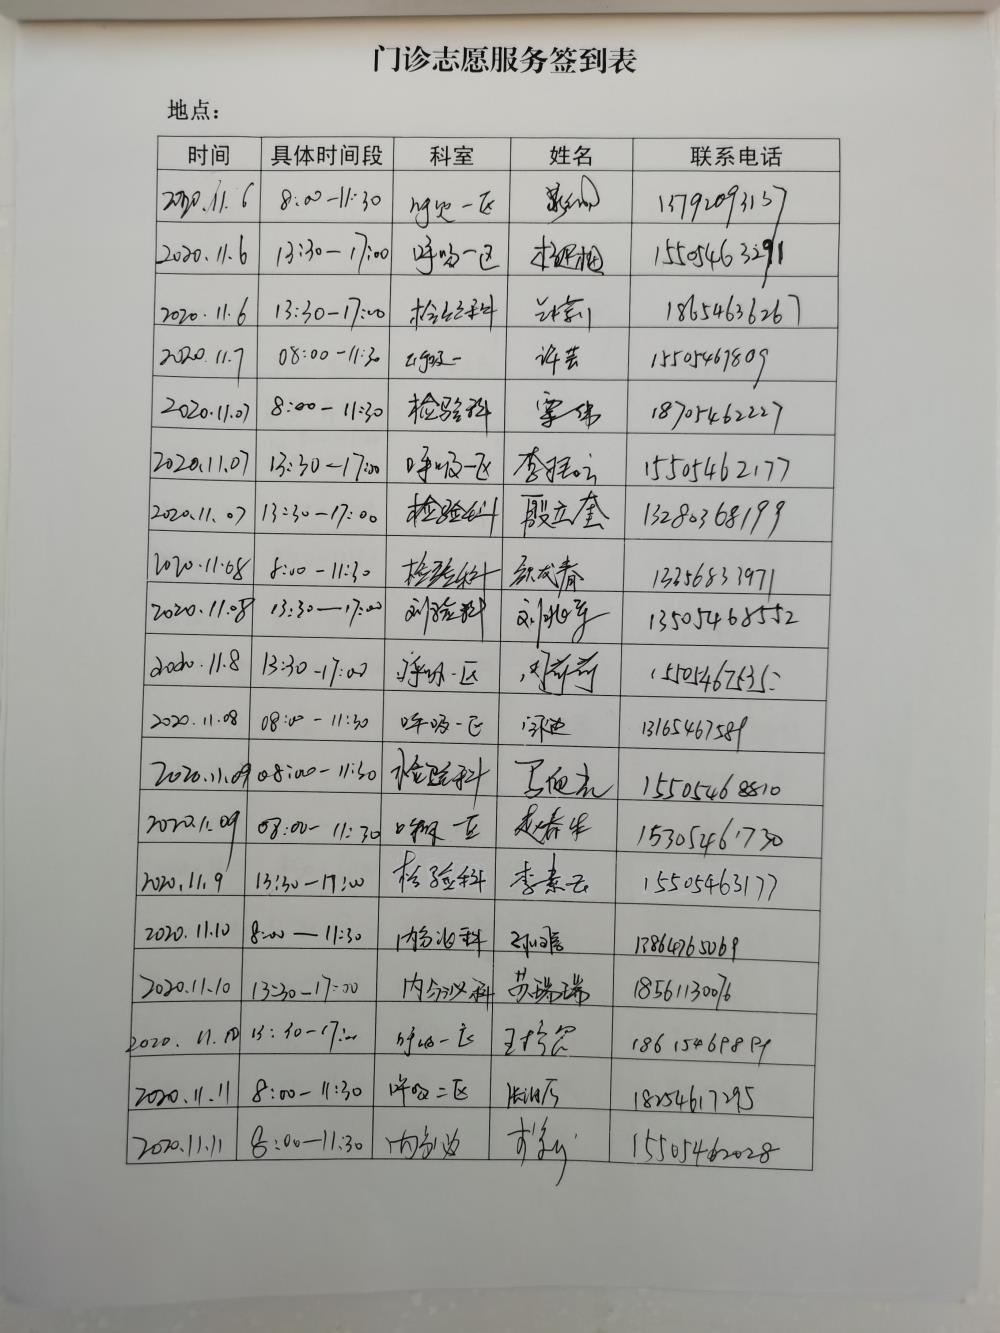 门诊志愿服务签到表
地点：
时间 具体时间段 科室 姓名 联系电话
2020.11.6 8:00-11:30 呼吸一区 13792093137
2020.11.6 13:30-17:00 呼吸一区 15505463291
2020.11.6 13:30-17:00 检验科 18654636267
2020.11.7 08:00-11:30 呼吸一 许芸 15505467809
2020.11.07 8:00-11:30 检验科 18705462227
2020.11.07 13:30-17:00 呼吸一区 15505462177
2020.11.07 13:30-17:00 检验科 殷立奎 13280368199
2020.11.08 8:00-11:30 检验科 13356833971
2020.11.08 13:30-17:00 13505468552
2020.11.8 13:30-17:00 呼吸一区
2020.11.08 08:00-11:30 呼吸一区 13165467589
2020.11.09 08:00-11:30 检验科 15505468810
2020.11.09 08:00-11:30 呼吸一区 赵春生 15305461730
2020.11.9 13:30-17:00 检验科 李素云 15505463177
2020.11.10 8:00-11:30 内分泌科 13864765069
2020.11.10 13:30-17:00 内分泌科 苏瑞瑞 18561130076
2020.11.10 13:30-17:00 呼吸一区 18615469899
2020.11.11 8:00-11:30 呼吸二区 18254617295
2020.11.11 8:00-11:30 内分泌 15505462028